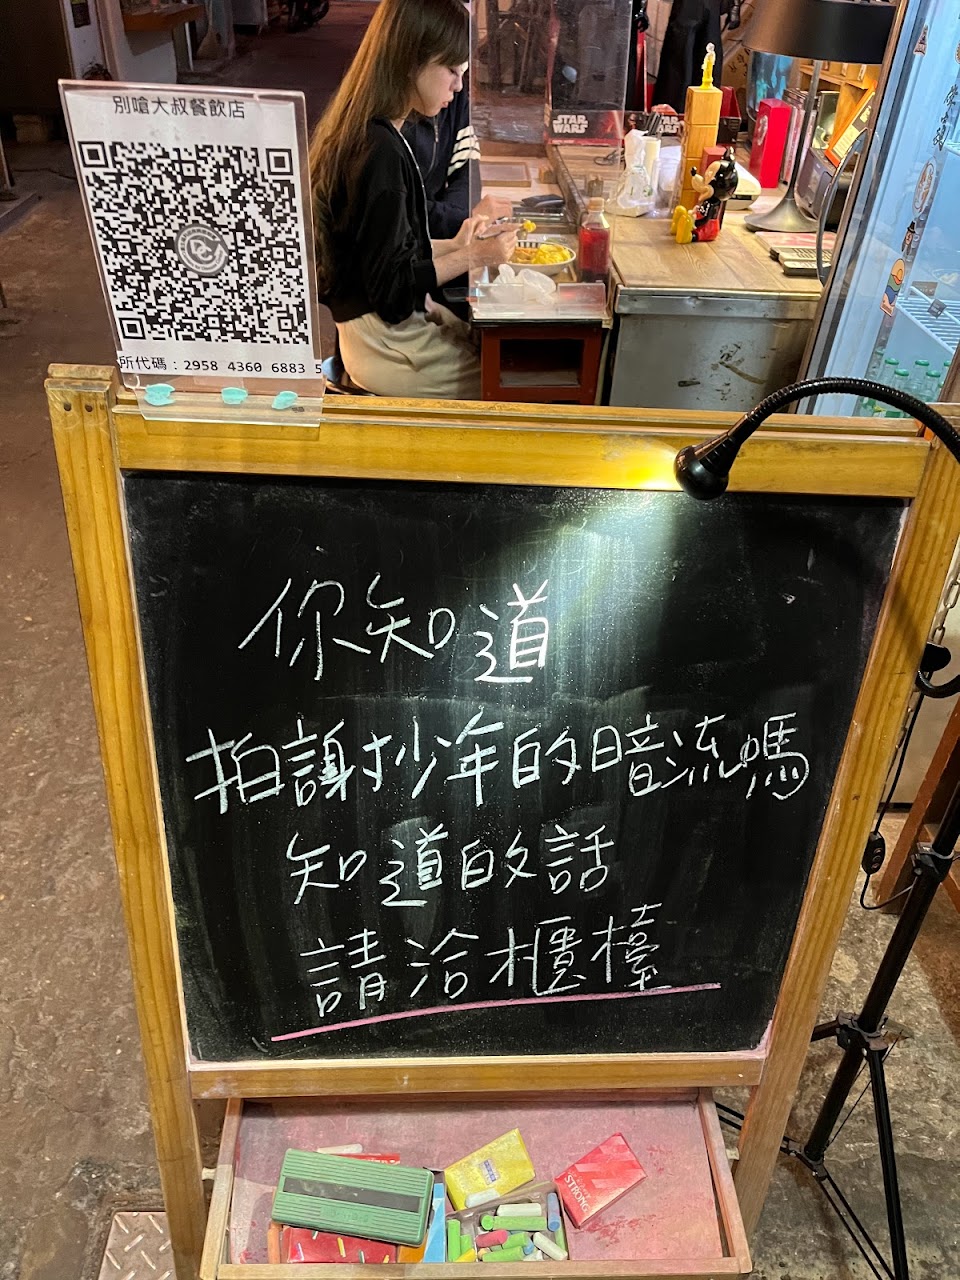 別嗆大叔餐飲店
所代碼：2958 4360 6883 5
STAR WARS
STAR WARS
你知道
拍謝少年的暗流嗎
知道的話
請洽櫃檯
STRONG